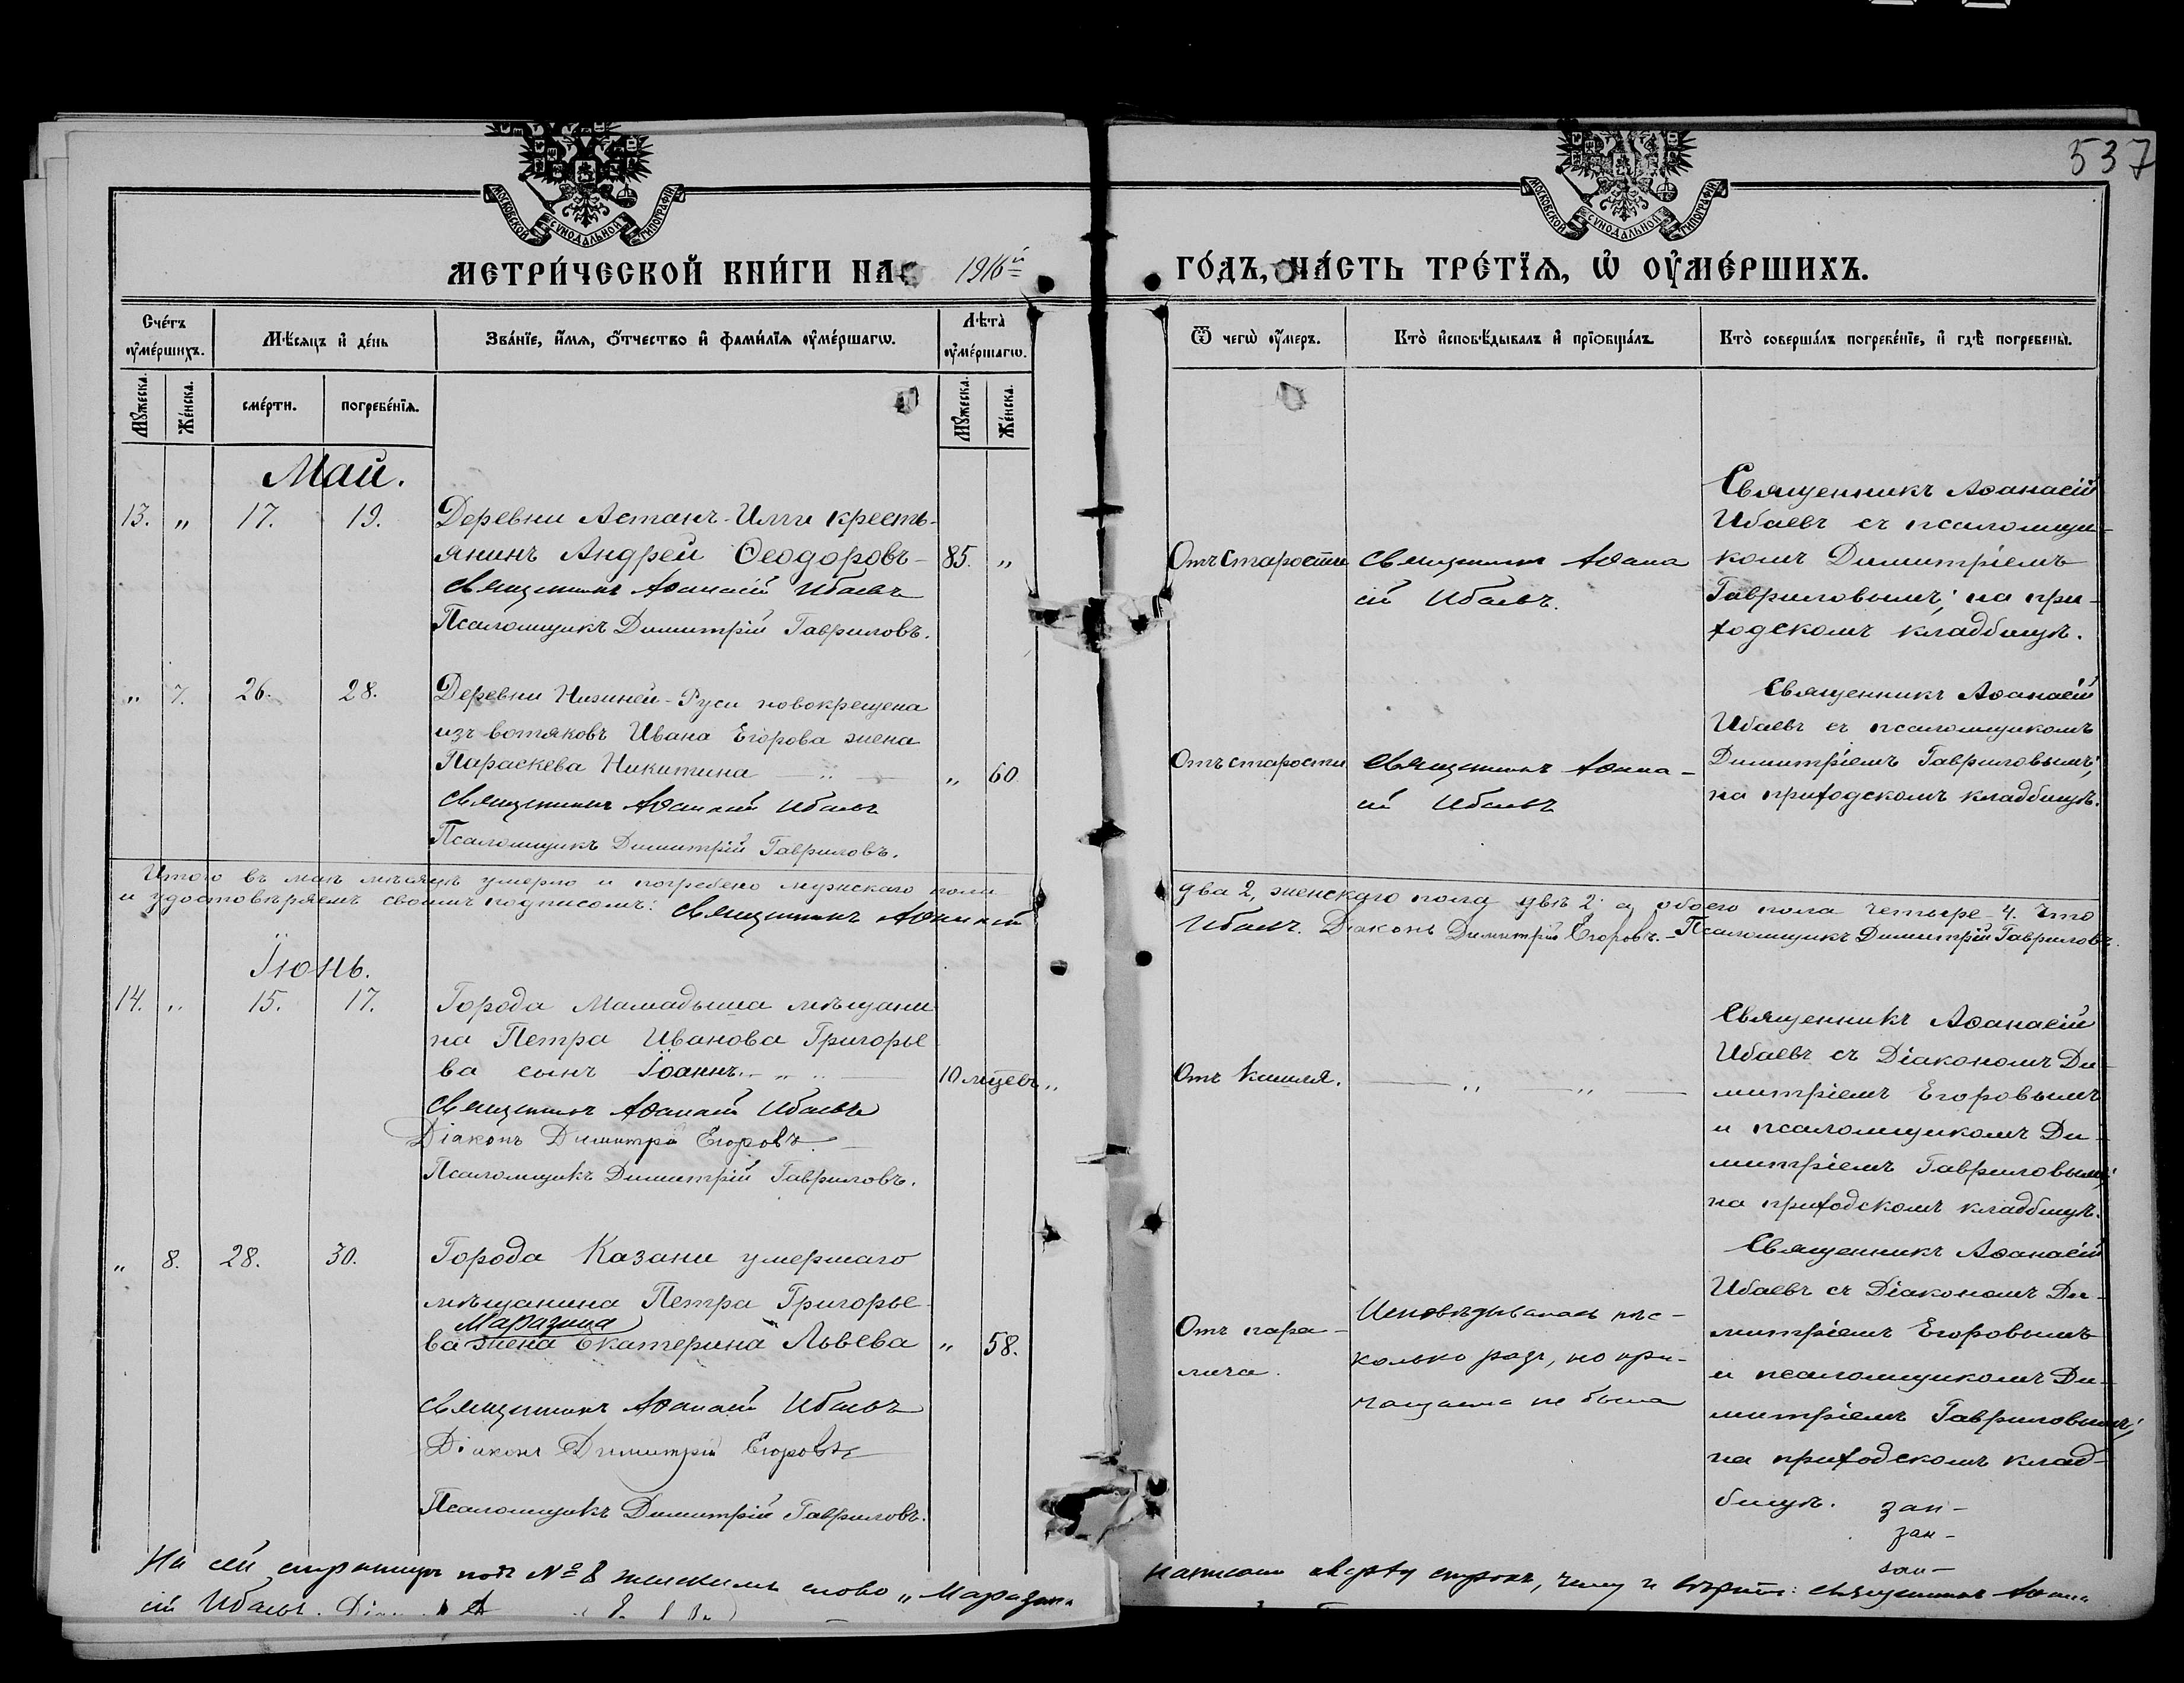 537
МОСКОВСКОЙ СѴНОДАЛЬНОЙ ТИПОГРАФІИ
МОСКОВСКОЙ СѴНОДАЛЬНОЙ ТИПОГРАФІИ
МЕТРИ́ЧЕСКОЙ КНИ́ГИ НА 1916й ГО́ДЪ, ЧА́СТЬ ТРЕ́ТЇѦ, Ѡ҆ ОУ҆МЕ́РШИХЪ.
Сче́тъ оу҆ме́ршихъ.
Мѣ́сяцъ и҆ де́нь
Зва́нїе, и҆́мя, ѻ҆́тчество и҆ фами́лїя оу҆ме́ршагѡ.
Лѣта̀ оу҆ме́ршагѡ.
Ѿ чегѡ̀ оу҆́меръ.
Кто̀ и҆сповѣ́дывалъ и҆ прїѡбща́лъ.
Кто̀ соверша́лъ погребе́нїе, и҆ гдѣ̀ погребены̀.
Мꙋ́жеска.
Же́нска.
сме́рти.
погребе́нїя.
Мꙋ́жеска.
Же́нска.
Май.
13. „ 17. 19.
Деревни Астанъ-Илги кресть-
янинъ Андрей Ѳеодоровъ- 85. „
Священникъ Аѳанасій Ибаевъ
Псаломщикъ Димитрій Гавриловъ.
Отъ старости
Священникъ Аѳана
сій Ибаевъ.
Священникъ Аѳанасій
Ибаевъ съ псаломщи-
комъ Димитріемъ
Гавриловымъ; на при-
ходскомъ кладбищѣ.
„ 7. 26. 28.
Деревни Нижней-Руси новокрещена
изъ вотяковъ Ивана Егорова жена
Параскева Никитина „ 60
Священникъ Аѳанасій Ибаевъ
Псаломщикъ Димитрій Гавриловъ.
Отъ старости
Священникъ Аѳана-
сій Ибаевъ
Священникъ Аѳанасій
Ибаевъ съ псаломщикомъ
Димитріемъ Гавриловымъ;
на приходскомъ кладбищѣ.
Итого въ маѣ мѣсяцѣ умерло и погребено мужскаго пола два 2, женскаго пола двѣ 2, а обоего пола четыре-4. Что
и удостовѣряемъ своимъ подписомъ: Священникъ Аѳанасій Ибаевъ. Діаконъ Димитрій Егоровъ.-Псаломщикъ Димитрій Гавриловъ.
Іюнь.
14. „ 15. 17.
Города Мамадыша мѣщани
на Петра Иванова Григорье
ва сынъ Іоаннъ. 10 мцевъ „
Священникъ Аѳанасій Ибаевъ
Діаконъ Димитрій Егоровъ.
Псаломщикъ Димитрій Гавриловъ.
Отъ кашля.
„ „
Священникъ Аѳанасій
Ибаевъ съ Діакономъ Ди-
митріемъ Егоровымъ
и псаломщикомъ Ди-
митріемъ Гавриловымъ;
на приходскомъ кладбищѣ.
„ 8. 28. 30.
Города Казани умершаго
мѣщанина Петра Григорье-
Маразина
ва жена Екатерина Львева „ 58.
Священникъ Аѳанасій Ибаевъ
Діаконъ Димитрій Егоровъ
Псаломщикъ Димитрій Гавриловъ.
Отъ пара-
лича.
Исповѣдывалась нѣс-
колько разъ, но при-
чащаема не была
Священникъ Аѳанасій
Ибаевъ съ Діакономъ Ди-
митріемъ Егоровымъ
и псаломщикомъ Ди-
митріемъ Гавриловымъ;
на приходскомъ клад-
бищѣ.
На сей страницѣ подъ № 8 женскимъ слово „Маразина написано сверху строкъ, чему и вѣрить: Священникъ Аѳана
сій Ибаевъ.